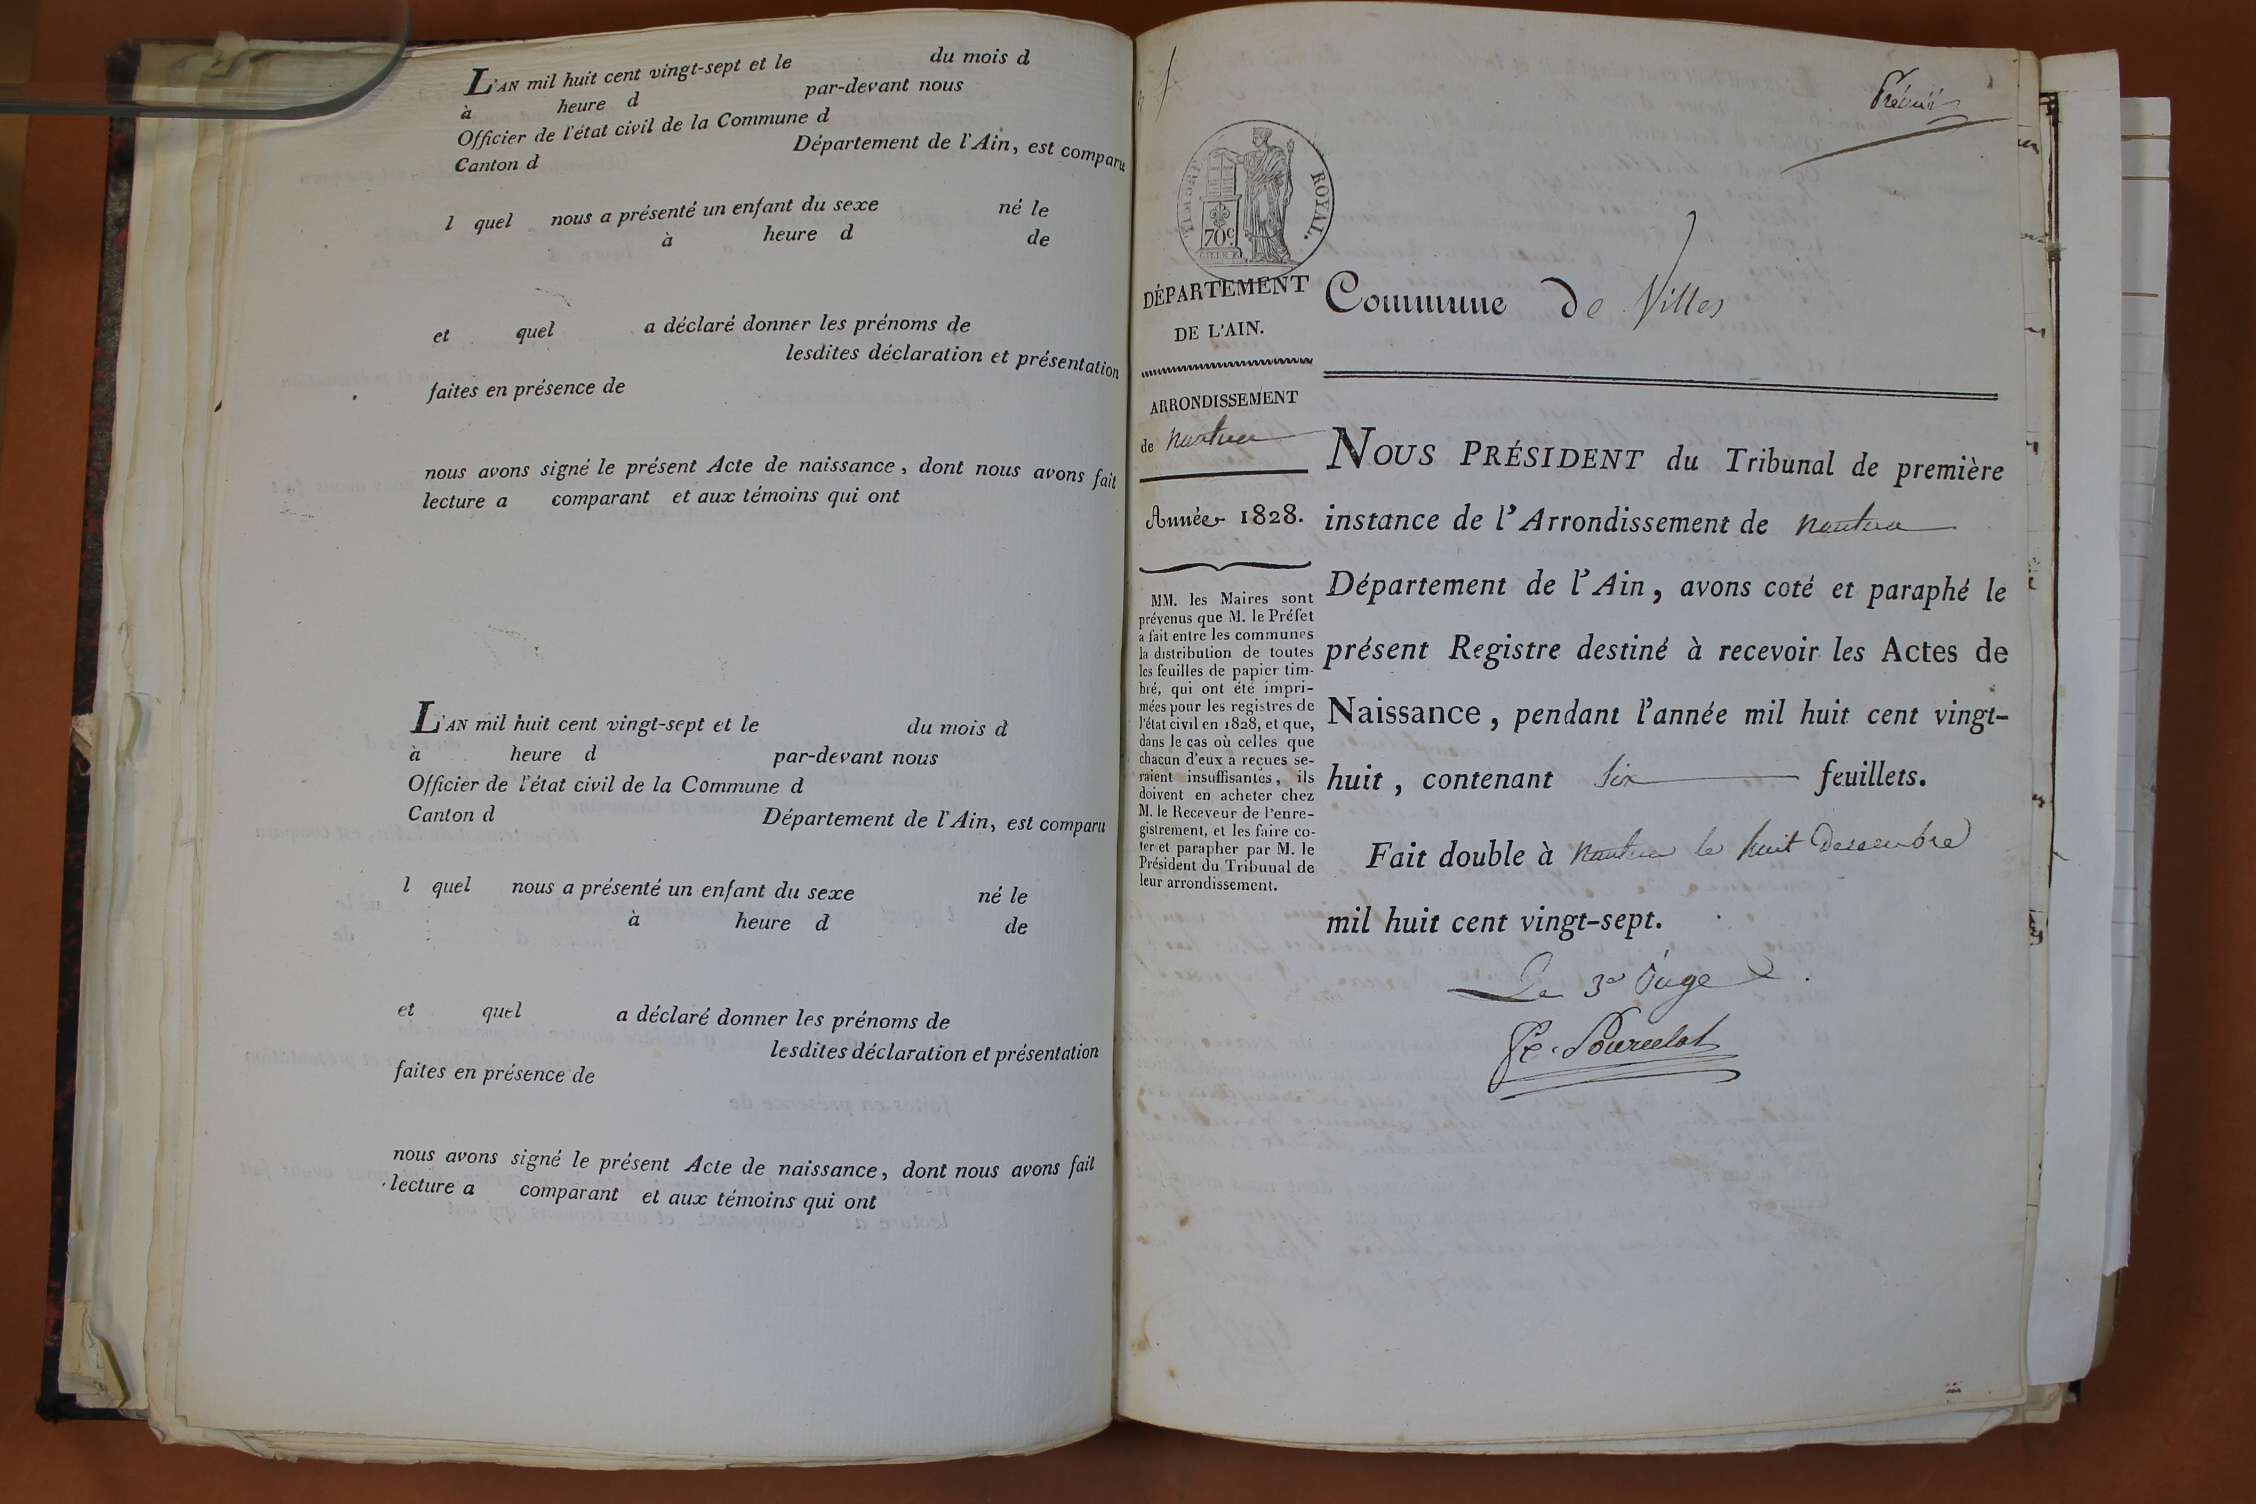 L'AN mil huit cent vingt-sept et le du mois d
à heure d par-devant nous
Officier de l'état civil de la Commune d
Canton d Département de l'Ain, est comparu
l quel nous a présenté un enfant du sexe né le
à heure d de
et quel a déclaré donner les prénoms de
lesdites déclaration et présentation
faites en présence de
nous avons signé le présent Acte de naissance, dont nous avons fait
lecture a comparant et aux témoins qui ont
L'AN mil huit cent vingt-sept et le du mois d
à heure d par-devant nous
Officier de l'état civil de la Commune d
Canton d Département de l'Ain, est comparu
l quel nous a présenté un enfant du sexe né le
à heure d de
et quel a déclaré donner les prénoms de
lesdites déclaration et présentation
faites en présence de
nous avons signé le présent Acte de naissance, dont nous avons fait
lecture a comparant et aux témoins qui ont
TIMBRE ROYAL.
70c
DÉPARTEMENT
DE L'AIN.
ARRONDISSEMENT
de nantua
Année 1828.
MM. les Maires sont
prévenus que M. le Préfet
a fait entre les communes
la distribution de toutes
les feuilles de papier tim-
bré, qui ont été impri-
mées pour les registres de
l'état civil en 1828, et que,
dans le cas où celles que
chacun d'eux a reçues se-
raient insuffisantes, ils
doivent en acheter chez
M. le Receveur de l'enre-
gistrement, et les faire co-
ter et parapher par M. le
Président du Tribunal de
leur arrondissement.
Commune de Villes
NOUS PRÉSIDENT du Tribunal de première
instance de l'Arrondissement de nantua
Département de l'Ain, avons coté et paraphé le
présent Registre destiné à recevoir les Actes de
Naissance, pendant l'année mil huit cent vingt-
huit, contenant six feuillets.
Fait double à nantua le huit decembre
mil huit cent vingt-sept.
Le 3e Juge